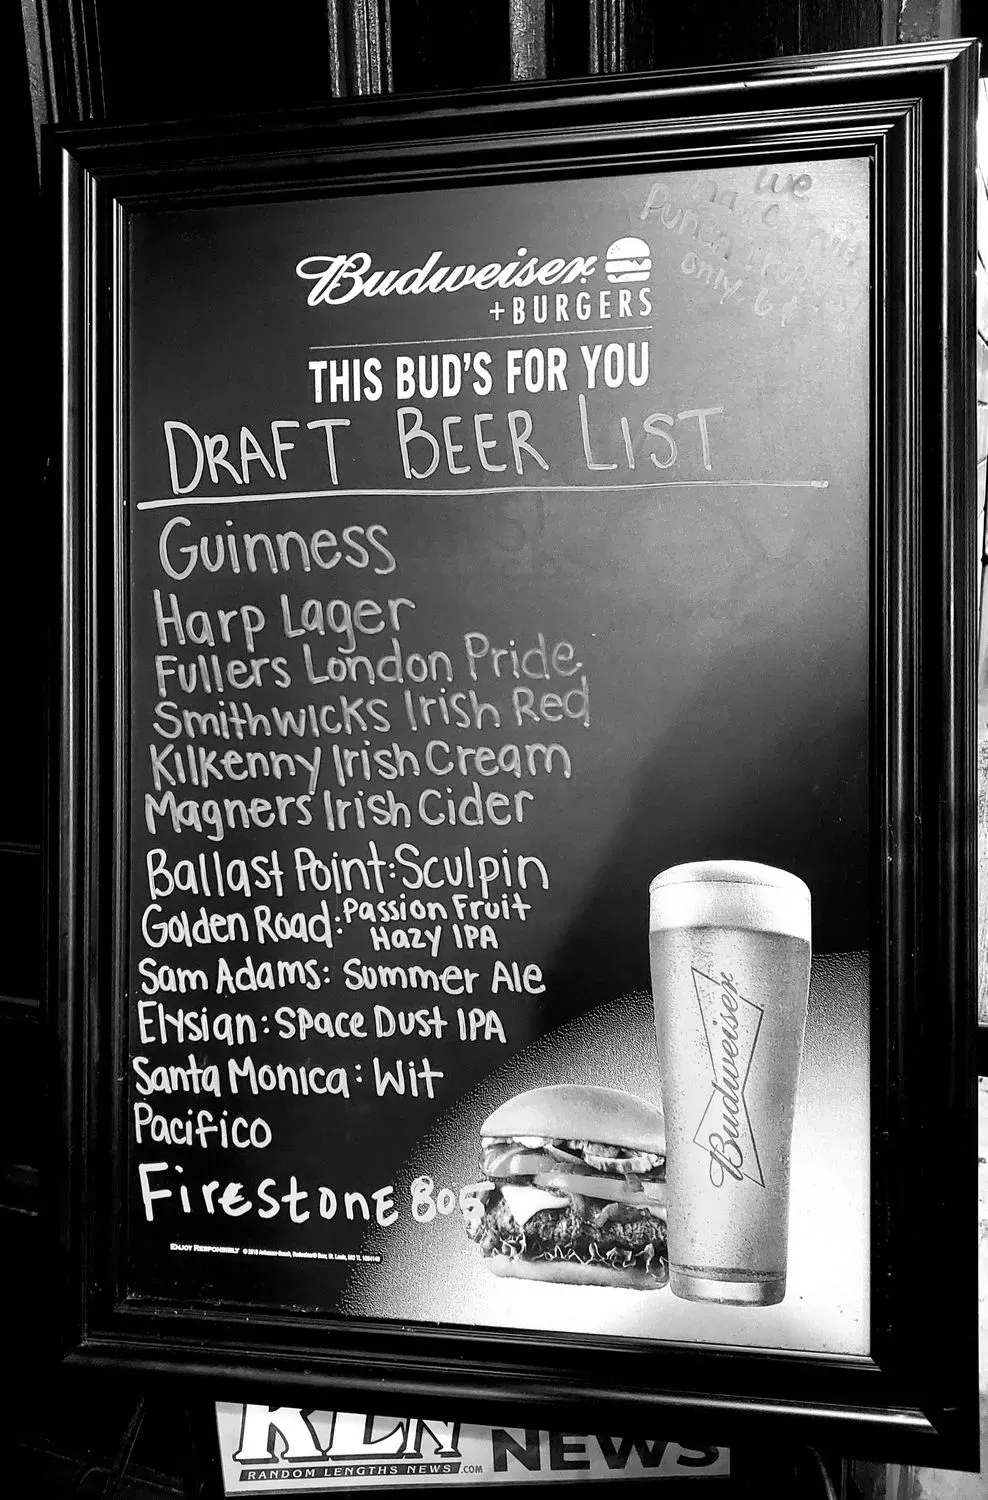 We
Punch
only
Budweiser
+BURGERS
THIS BUD'S FOR YOU
DRAFT BEER LIST
Guinness
Harp Lager
Fullers London Pride
Smithwicks Irish Red
Kilkenny Irish Cream
Magners Irish Cider
Ballast Point: Sculpin
Golden Road: Passion Fruit
Hazy IPA
Sam Adams: Summer Ale
Elysian: Space Dust IPA
Santa Monica: Wit
Pacifico
Firestone 805
Budweiser
ENJOY RESPONSIBLY
RLN NEWS
RANDOM LENGTHS NEWS .COM